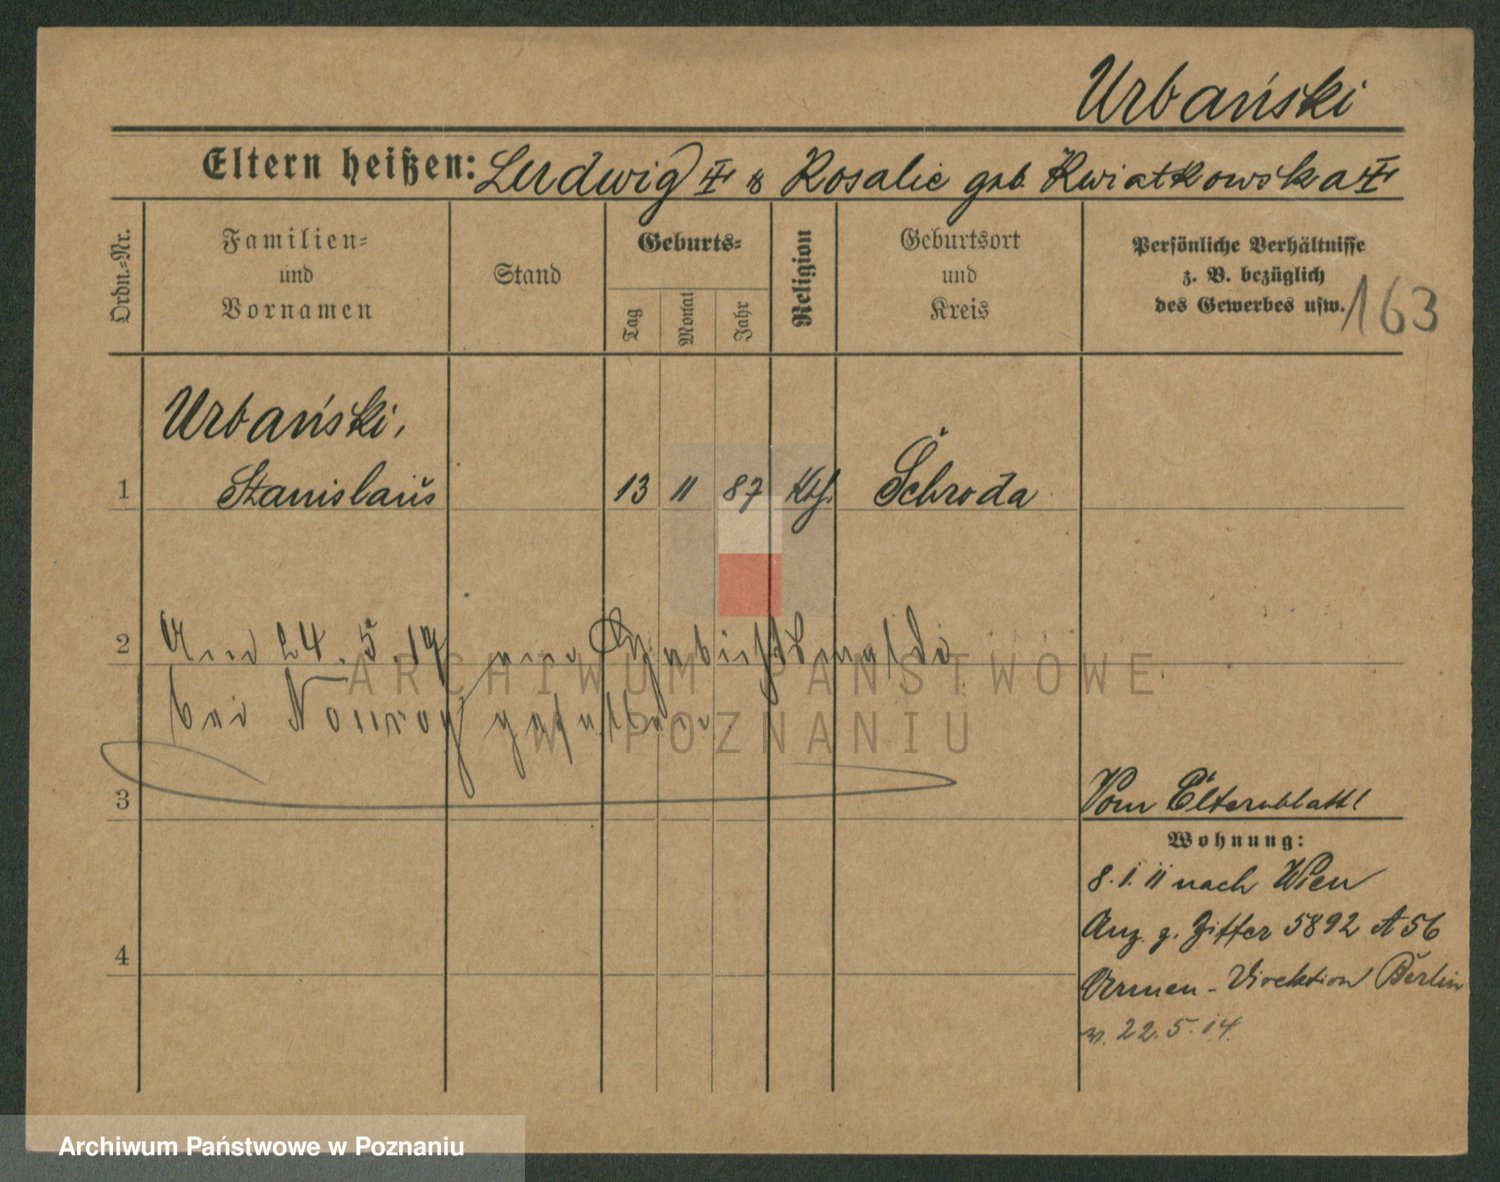 Urbański
Eltern heißen: Ludwig ‡ & Rosalie geb. Kwiatkowska ‡
Ordn.-Nr.
Familien- und Vornamen
Stand
Geburts-
Tag
Monat
Jahr
Religion
Geburtsort und Kreis
Persönliche Verhältnisse
z. B. bezüglich
des Gewerbes usw.
163
Urbański,
1 Stanislaus 13 11 87 Kth. Schroda
2 24.5.19
bei
ARCHIWUM PAŃSTWOWE
W POZNANIU
3
Vom Elternblatt!
Wohnung:
8.1.11 nach Wien
Anz. g. Ziffer 5892 A 56
4
Armen-Direktion Berlin
v. 22.5.14.
Archiwum Państwowe w Poznaniu